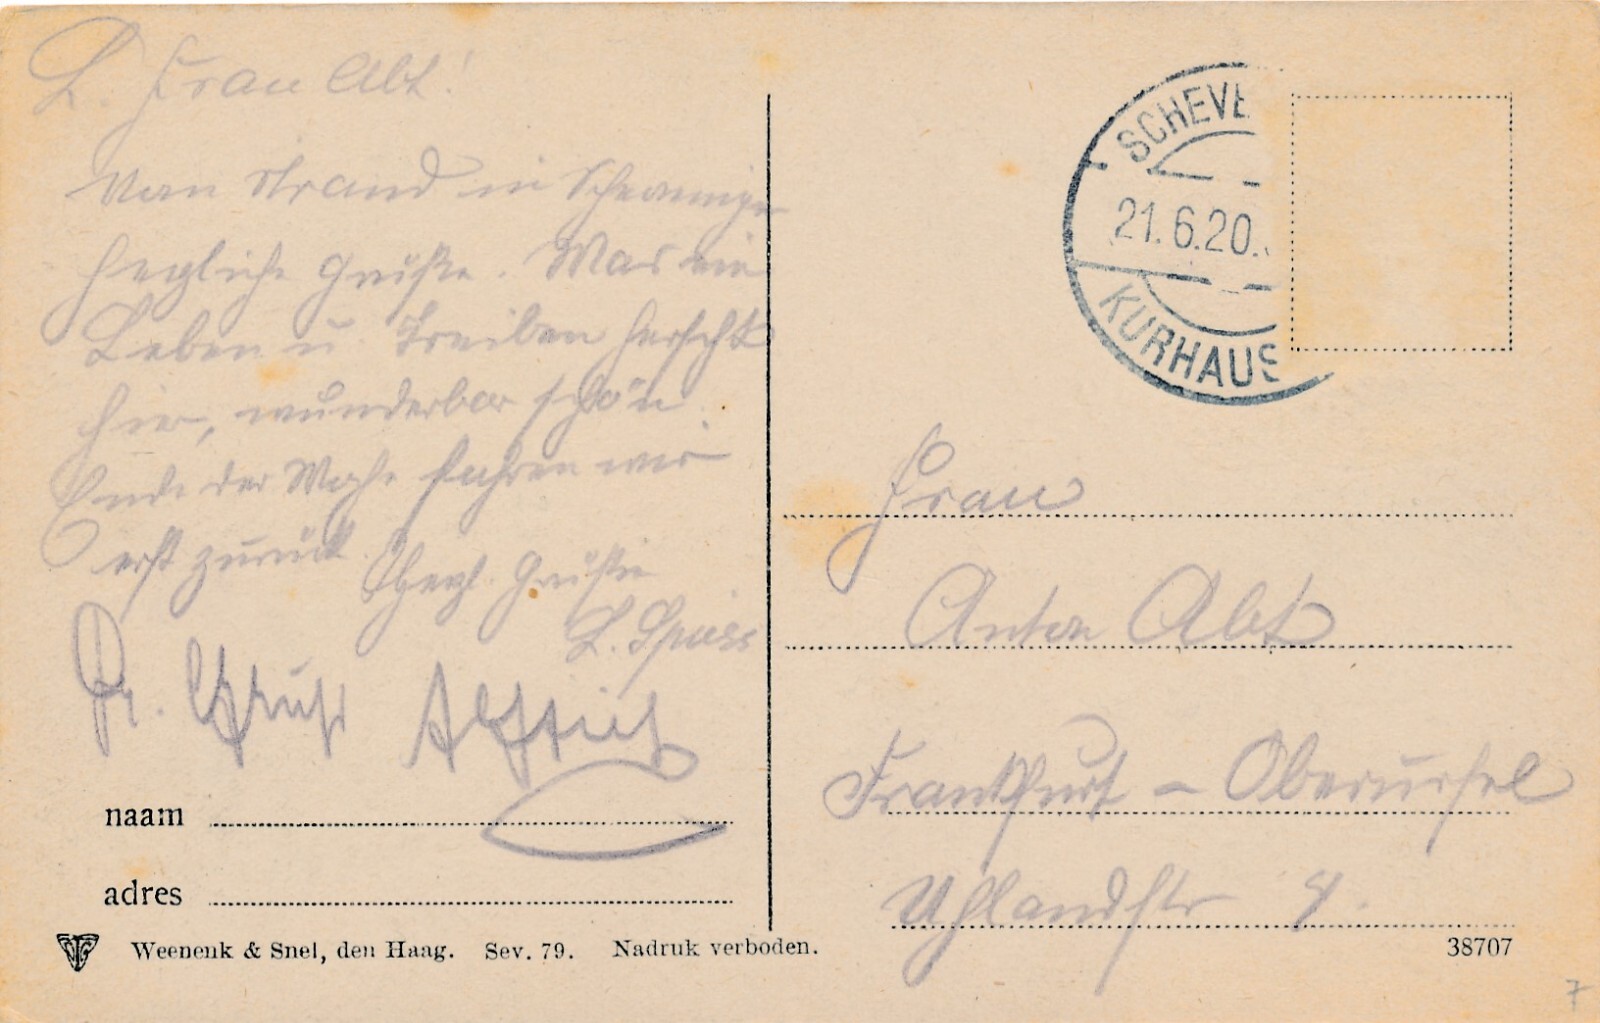 L. Frau Abt!
Vom Strand in Scheveningen
herzliche Grüße. Was ein
Leben u. Treiben herscht
hier, wunderbar schön.
Ende der Woche fahren wir
erst zurück. Herzl. Grüße
L. Spiess
naam
adres
Weenenk & Snel, den Haag. Sev. 79. Nadruk verboden.
SCHEVE
21.6.20.
KURHAUS
Frau
Anton Abt
Frankfurt - Oberursel
Uhlandstr 9.
38707
7